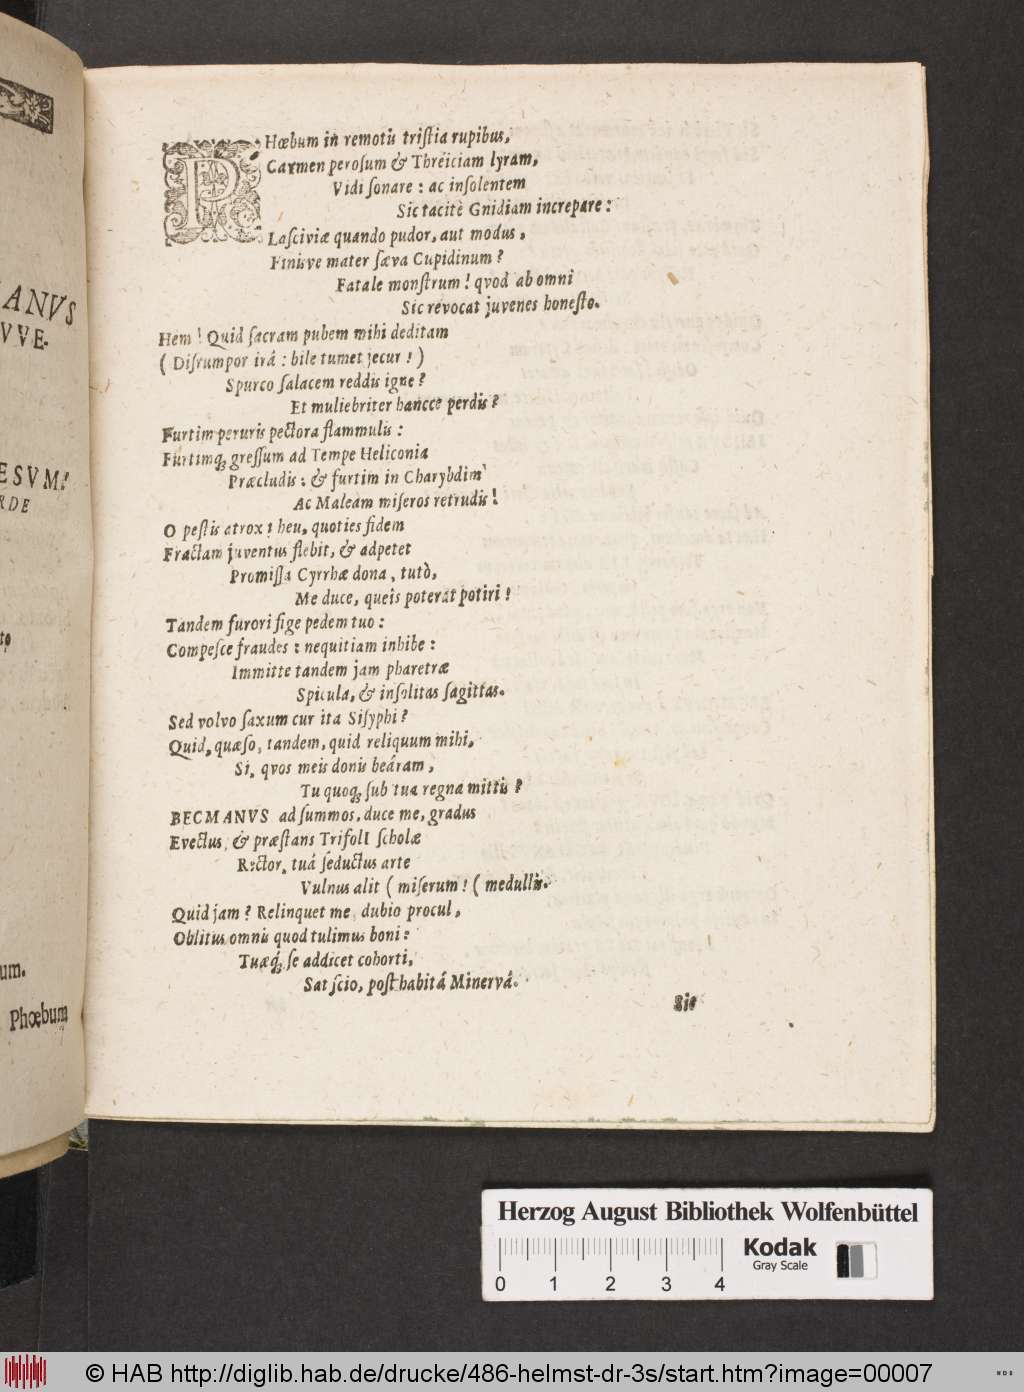 PHœbum in remotis tristia rupibus,
Carmen perosum & Threiciam lyram,
Vidi sonare: ac insolentem
Sic tacitè Gnidiam increpare:
Lasciviæ quando pudor, aut modus,
Finisve mater sæva Cupidinum?
Fatale monstrum! qvod ab omni
Sic revocat juvenes honesto.
Hem! Quid sacram pubem mihi deditam
(Disrumpor irâ: bile tumet jecur!)
Spurco salacem reddis igne?
Et muliebriter hancce perdis?
Furtim peruris pectora flammulis:
Furtimq; gressum ad Tempe Heliconia
Præcludis: & furtim in Charybdim
Ac Maleam miseros retrudis!
O pestis atrox! heu, quoties fidem
Fractam juventus flebit, & adpetet
Promissa Cyrrhæ dona, tutò,
Me duce, queîs poterat potiri!
Tandem furori fige pedem tuo:
Compesce fraudes: nequitiam inhibe:
Immitte tandem jam pharetræ
Spicula, & insolitas sagittas.
Sed volvo saxum cur ita Sisyphi?
Quid, quæso, tandem, quid reliquum mihi,
Si, qvos meis donis beâram,
Tu quoq; sub tua regna mittis?
BECMANVS ad summos, duce me, gradus
Evectus, & præstans TrifolI scholæ
Rector, tuâ seductus arte
Vulnus alit (miserum!( medullis.
Quid jam? Relinquet me, dubio procul,
Oblitus omnis quod tulimus boni:
Tuæq; se addicet cohorti,
Sat scio, posthabitâ Minervâ.
Sic
ANVS
VVE-
ESVM!
RDE
to
um.
Phœbum
Herzog August Bibliothek Wolfenbüttel
0 1 2 3 4
Kodak
Gray Scale
© HAB http://diglib.hab.de/drucke/486-helmst-dr-3s/start.htm?image=00007